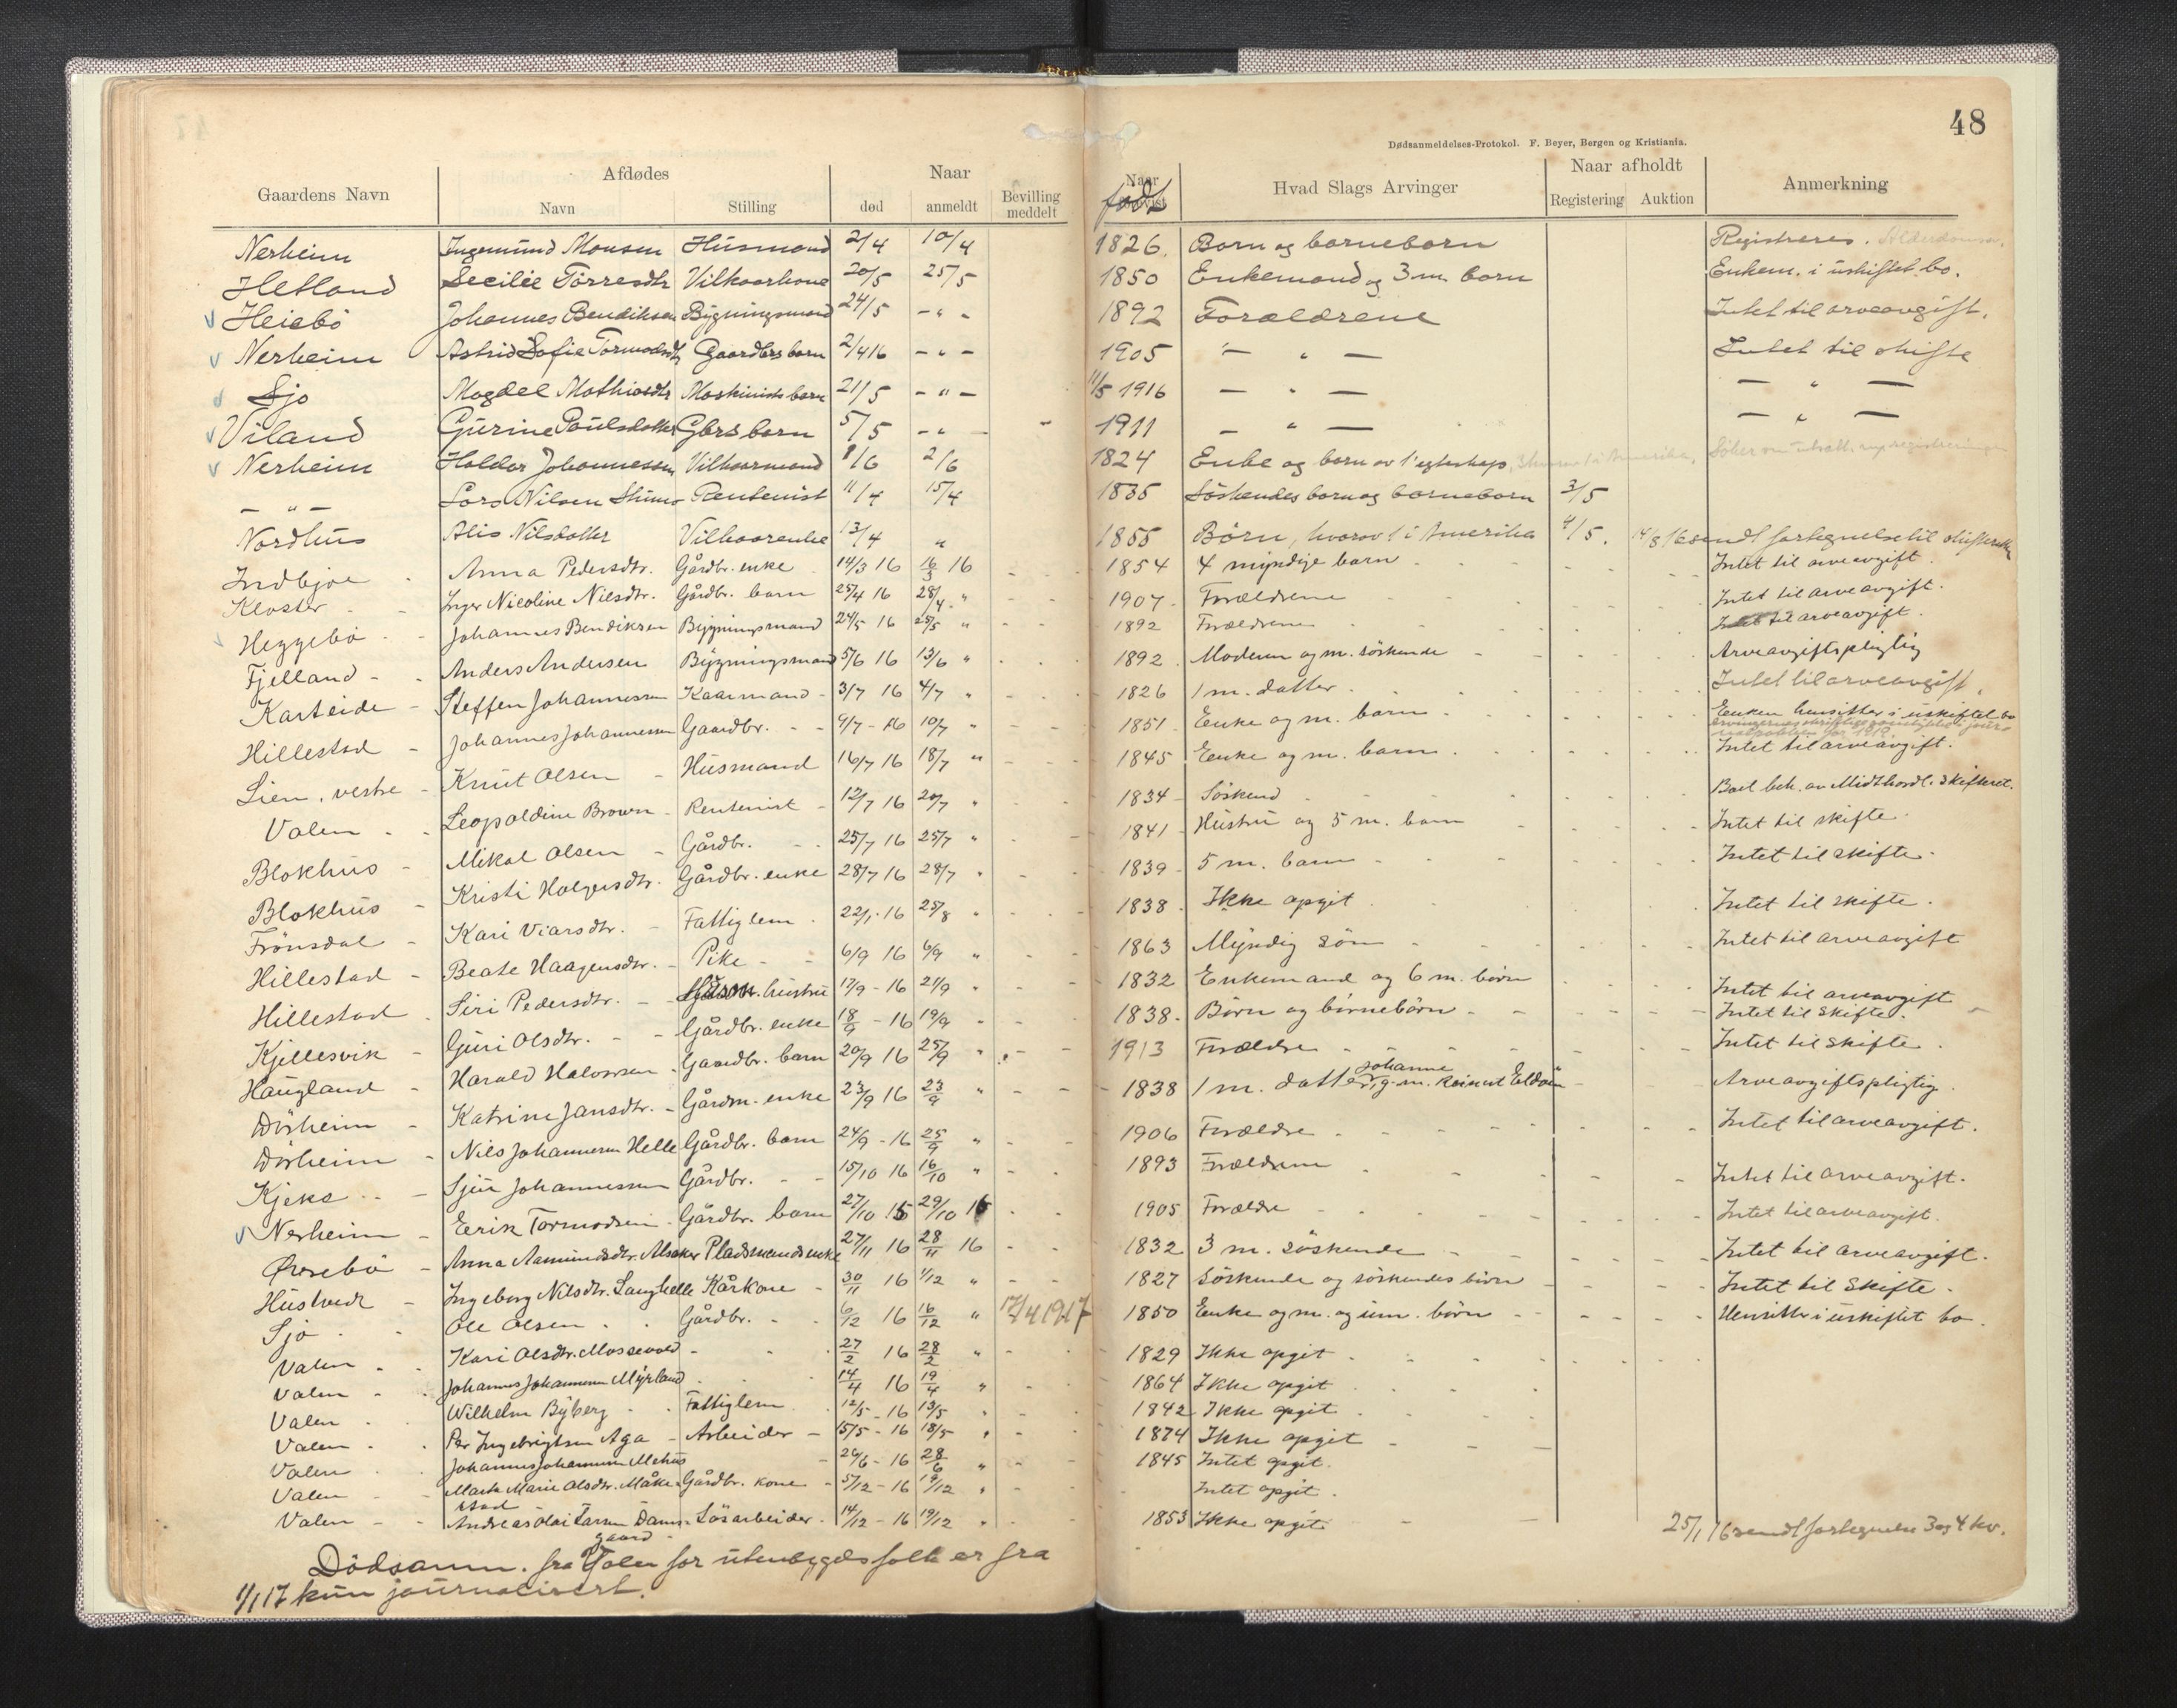 48
Dødsanmeldelses-Protokol. F. Beyer, Bergen og Kristiania.
Gaardens Navn | Afdødes | Naar | Naar | Hvad Slags Arvinger | Naar afholdt | Anmerkning
Navn | Stilling | død | anmeldt | Bevilling meddelt | født | Registering | Auktion
Nerheim | Ingemund Monsen | Husmand | 2/4 | 10/4 | 1826. | Born og borneborn | Registreres.
Hetland | Secilie Torresdtr | Vilkaarkone | 20/5 | 25/5 | 1850 | Enkemand og 3 m. born | Enkem. i uskiftet bo.
Heiebö | Johannes Bendiksen | Bygningsmand | 24/5 | - " - | 1892 | Forældrene | Intet til arveavgift.
Nerheim | Astrid Sofie Tormodsdtr | Gaardbrs born | 2/4 16 | - " - | 1905 | - " - | Intet til skifte
Sjo | Magdel Mathiasdtr | Maskinists born | 21/5 | - " - | 11/5 1916 | - " - | - " -
Viland | Gurine Paulsdatter | Gbrs born | 5/5 | - " - | 1911 | - " - | - " -
Nerheim | Haldor Johannessen | Vilkaarmand | 1/6 | 2/6 | 1824 | Enke og born av 1' egteskap,
- " - | Lars Nilsen | Rentenist | 11/4 | 15/4 | 1835 | Söskendes born og borneborn | 3/5
Nordhus | Alis Nilsdatter | Vilkaarenke | 13/4 | " | 1855 | Börn, hvorav 1 i Amerika | 4/5. | 14/8 16 sendt fortegnelse til
Indbjoe | Anna Pedersdtr. | Gårdbr. enke | 14/3 16 | 16/3 16 | 1854 | 4 myndige barn | Intet til arveavgift.
Kloster | Inger Nicoline Nilsdtr. | Gårdbr. barn | 25/4 16 | 28/4 " | 1907 | Forældrene | Intet til arveavgift.
Heggebö | Johannes Bendiksen | Bygningsmand | 24/5 16 | 25/5 " | 1892 | Forældrene | Intet til arveavgift.
Fjelland | Anders Andersen | Bygningsmand | 5/6 16 | 13/6 " | 1892 | Moderen og m. söskende | Arveavgiftspligtig
Karteide | Steffen Johannessen | Kaarmand | 3/7 16 | 4/7 " | 1826 | 1 m. datter | Intet til arveavgift.
Hillestad | Johannes Johannessen | Gaardbr. | 9/7 - 16 | 10/7 " | 1851 | Enke og m. barn | Enken hensitter i uskiftet bo
Lien, vestre | Knut Olsen | Husmand | 16/7 16 | 18/7 " | 1845 | Enke og m. barn | Intet til arveavgift.
Valen | Leopoldine Brown | Rentenist | 12/7 16 | 20/7 " | 1834 | Söskend | Boet beh. av Midthordl. skifteret.
Blokhus | Mikal Olsen | Gårdbr. | 25/7 16 | 25/7 " | 1841 | Hustru og 5 m. barn | Intet til skifte.
Blokhus | Kristi Holgersdtr. | Gårdbr. enke | 28/7 16 | 28/7 " | 1839 | 5 m. barn | Intet til skifte.
Frönsdal | Kari Viarsdtr. | Fattiglem | 22/1. 16 | 25/8 " | 1838 | Ikke opgit | Intet til skifte.
Hillestad | Beate Haagensdtr. | Pike | 6/9 16 | 6/9 " | 1863 | Myndig sön | Intet til arveavgift
Hillestad | Siri Pedersdtr. | Husm. hustru | 17/9 - 16 | 21/9 " | 1832 | Enkemand og 6 m. börn | Intet til arveavgift
Kjellesvik | Guri Olsdtr. | Gårdbr. enke | 18/9 - 16 | 19/9 " | 1838. | Börn og börnebörn | Intet til skifte.
Haugland | Harald Halvorsen | Gaardbr. barn | 20/9 16 | 25/9 " | 1913 | Forældre | Intet til skifte.
Dörheim | Katrine Jansdtr. | Gårdm. enke | 23/9 16 | 23/9 " | 1838 | 1 m. datter, Johanne g. m. Reinert Eldöen | Arveavgiftspligtig
Dörheim | Nils Johannesen Helle | Gårdbr. barn | 24/9 - 16 | 25/9 " | 1906 | Forældre | Intet til arveavgift.
Kjeks | Sjur Johannessen | Gårdbr. | 15/10 16 | 16/10 " | 1893 | Forældrene | Intet til arveavgift.
Nerheim | Eerik Tormodsen | Gårdbr. barn | 27/10 15 | 29/10 16 | 1905 | Forældre | Intet til arveavgift.
Öresebö | Anna Aamundsdtr. Alsaker | Pladsmandsenke | 27/11 16 | 28/11 16 | 1832 | 3 m. söskende | Intet til arveavgift.
Hustvedt | Ingeborg Nilsdtr. Langhelle | Kårkone | 30/11 16 | 1/12 " | 1827 | Söskende og söskendes börn | Intet til skifte.
Sjo | Ole Olsen | Gårdbr. | 6/12 16 | 16/12 " | 17/4 1917 | 1850 | Enke og m. og um. börn | Hensitter i uskiftet bo.
Valen | Kari Olsdtr. Mossevold | 27/2 16 | 28/2 " | 1829 | Ikke opgit
Valen | Johannes Johannesen Myrland | 14/4 16 | 19/4 " | 1864 | Ikke opgit
Valen | Wilhelm Byberg | Fattiglem | 12/5 - 16 | 13/5 " | 1842 | Ikke opgit
Valen | Per Ingebrigtsen Aga | Arbeider | 15/5 - 16 | 18/5 " | 1874 | Ikke opgit
Valen | Johannes Johannesen Mehus | 26/6 - 16 | 28/6 " | 1845 | Intet opgit.
Valen | Marta Marie Olsdtr. Måkestad | Gårdbr. kone | 5/12 - 16 | 19/12 " | Intet opgit.
Valen | Andreas Olai Larsen Damsgaard | Lösarbeider | 14/12 - 16 | 19/12 " | 1853 | Ikke opgit | 25/1 16 sendt fortegnelse 3 og 4 kv.
Dödsanm. fra Valen for utenbygdsfolk er fra
1/1 17 kun journalisert.